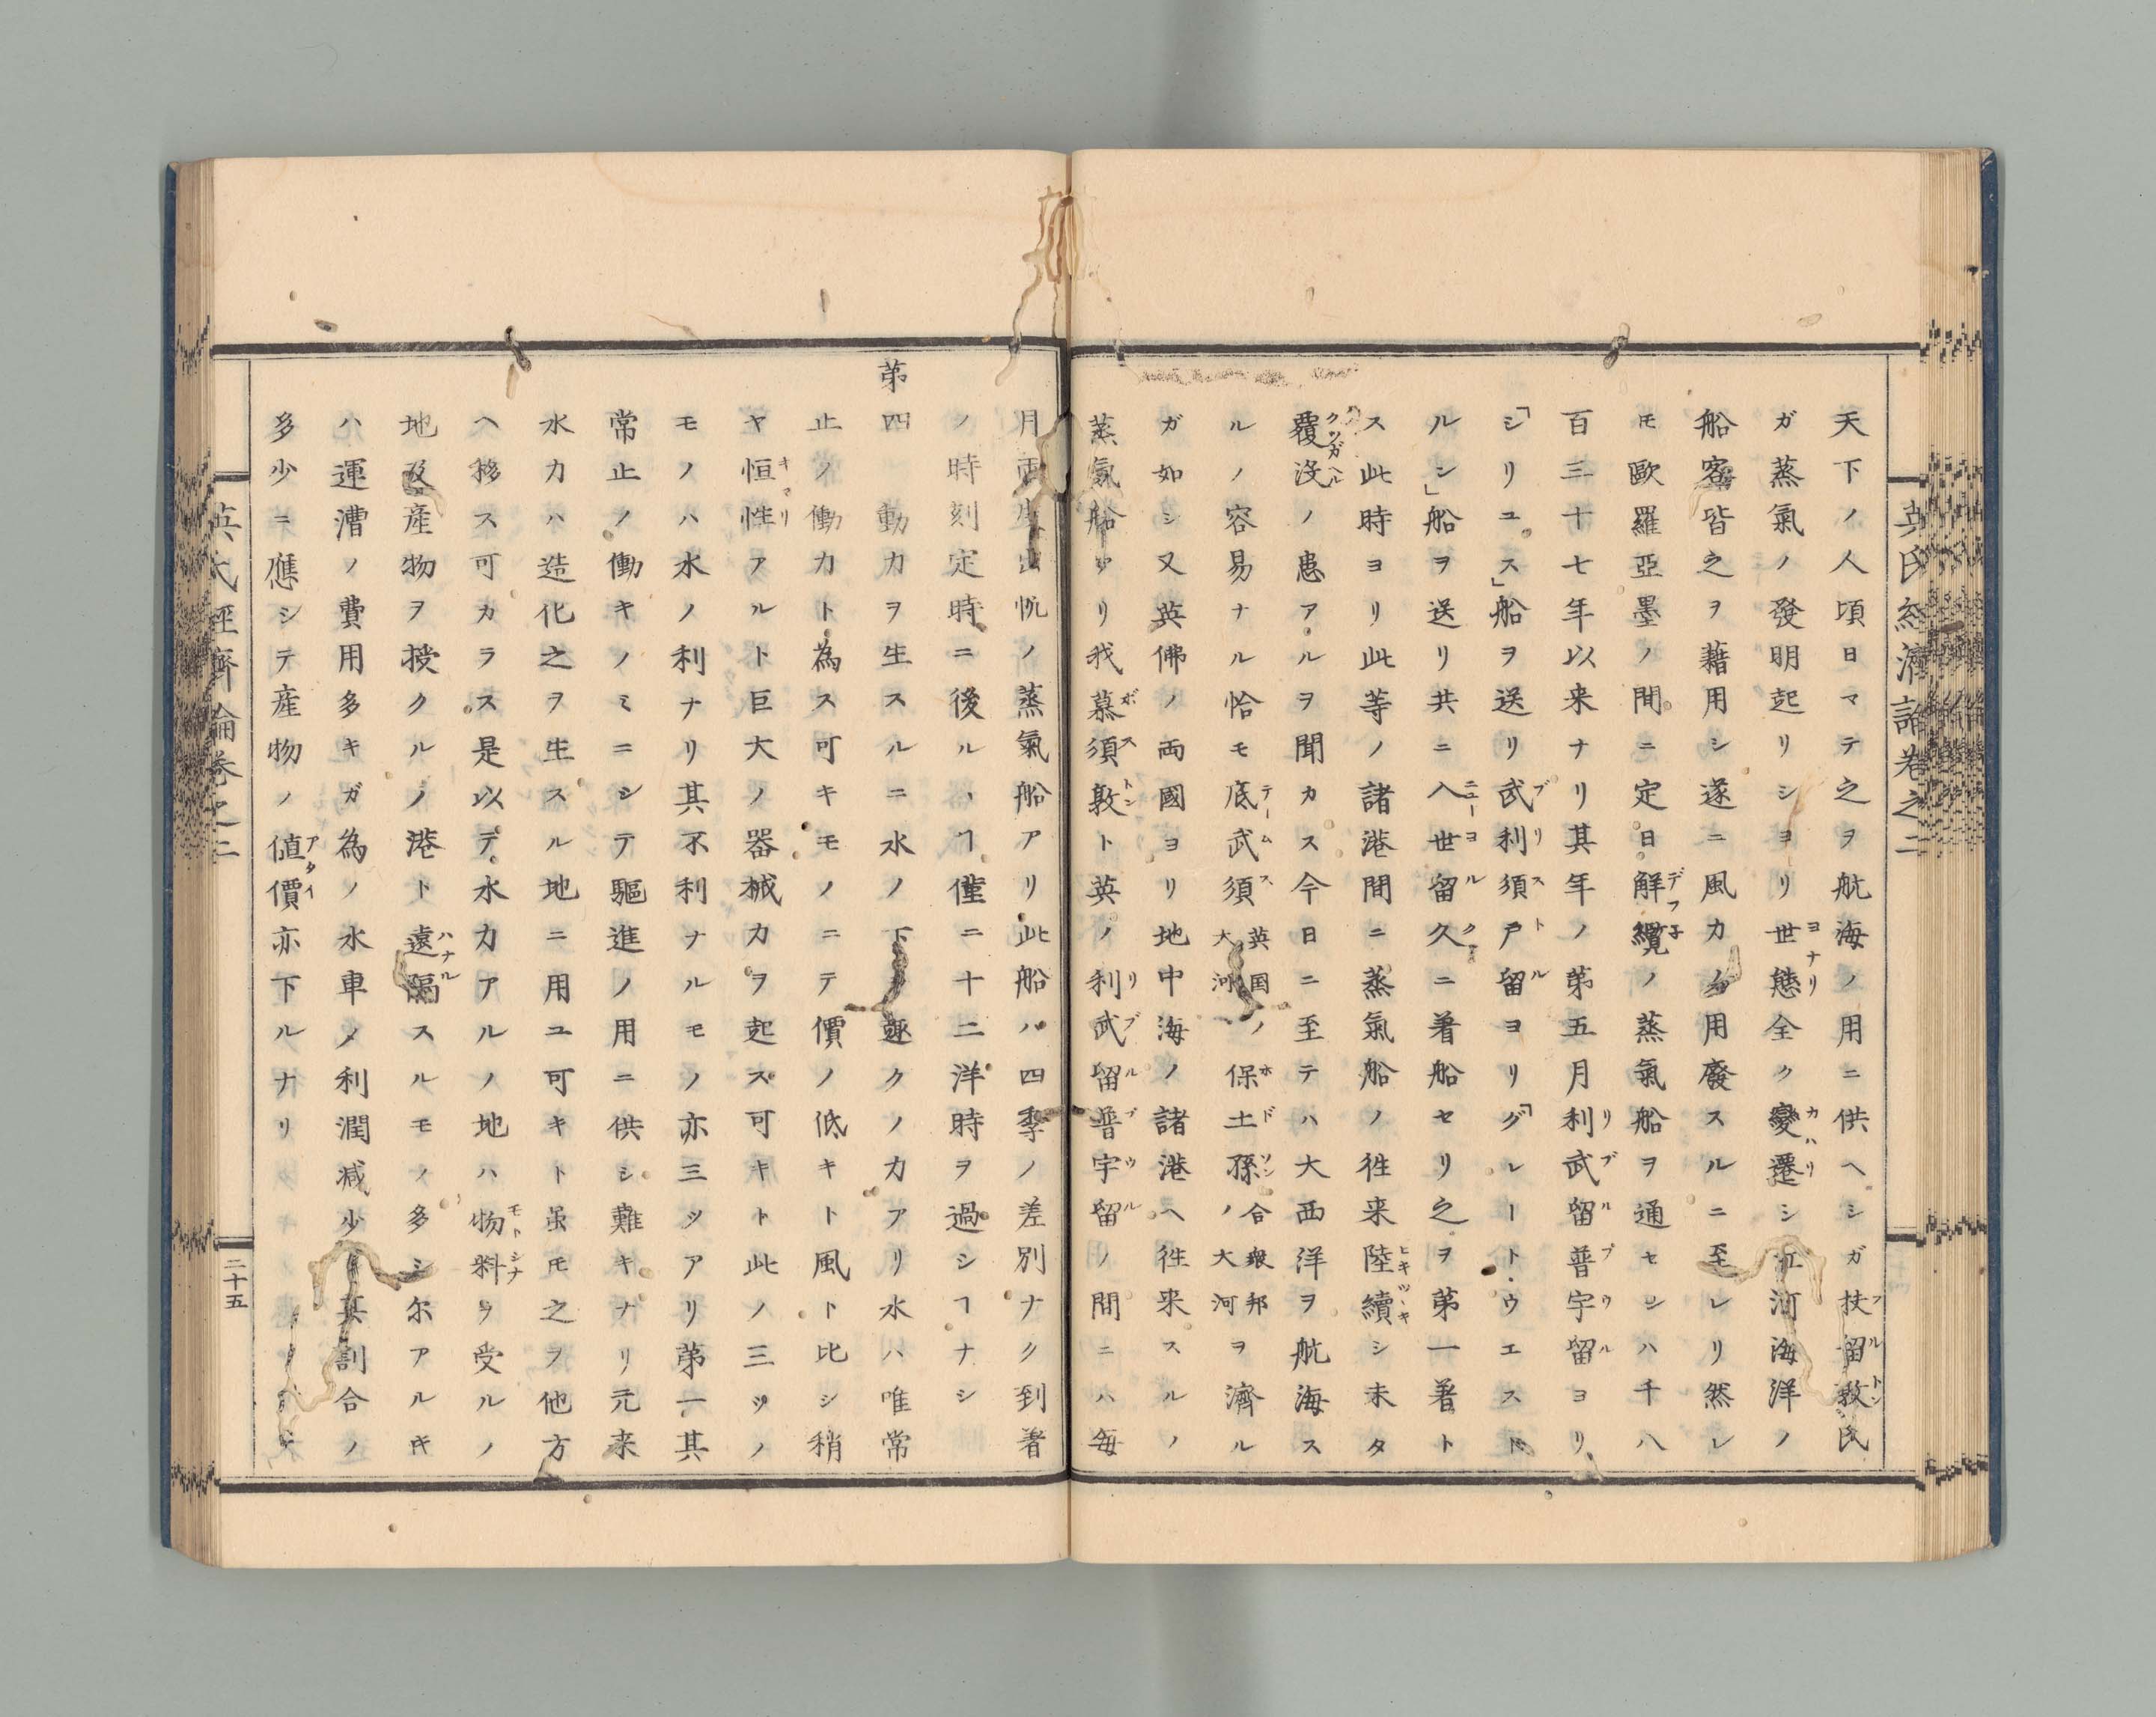 英氏経済論巻之二
天下ノ人頃日マテ之ヲ航海ノ用ニ供ヘシガ扶留敦氏
ガ蒸氣ノ發明起リシヨリ世態全ク變遷シ江河海洋ノ
船客皆之ヲ藉用シ遂ニ風力ノ用廢スルニ至レリ然レ
モ歐羅亞墨ノ間ニ定日解纜ノ蒸氣船ヲ通セシハ千八
百三十七年以来ナリ其年ノ第五月利武留普宇留ヨリ
「シリユス」船ヲ送リ武利須戸留ヨリ「グレートウエスト
ルン」船ヲ送リ共ニ入世留久ニ着船セリ之ヲ第一著ト
ス此時ヨリ此等ノ諸港間ニ蒸氣船ノ徃来陸續シ未タ
覆没ノ患アルヲ聞カス今日ニ至テハ大西洋ヲ航海ス
ルノ容易ナル恰モ底武須英国大河ノ保土孫合衆邦ノ大河ヲ濟ル
ガ如シ又英佛ノ両國ヨリ地中海ノ諸港ヘ徃来スルノ
蒸氣船アリ我慕須敦ト英ノ利武留普宇留ノ間ニハ毎
月両度出帆ノ蒸氣船アリ此船ハ四季ノ差別ナク到著
ノ時刻定時ニ後ルヽヿ僅ニ十二洋時ヲ過シヿナシ
第四 動力ヲ生スルニ水ノ下趣クノ力アリ水ハ唯常
止ノ働力ト為ス可キモノニテ價ノ低キト風ト比シ稍
ヤ恒性アルト巨大ノ器械力ヲ起ス可キト此ノ三ツノ
モノハ水ノ利ナリ其不利ナルモノ亦三ツアリ第一其
常止ノ働キノミニシテ驅進ノ用ニ供シ難キナリ元来
水力ハ造化之ヲ生スル地ニ用ユ可キト虽モ之ヲ他方
ヘ移ス可カラス是以テ水力アルノ地ハ物料ヲ受ルノ
地及産物ヲ授クルノ港ト遠隔スルモノ多シ尓アルキ
ハ運漕ノ費用多キガ為ノ水車ノ利潤減少シ其割合ノ
多少ニ應シテ産物ノ値價亦下ルナリ
英氏經齊論巻之二
二十五